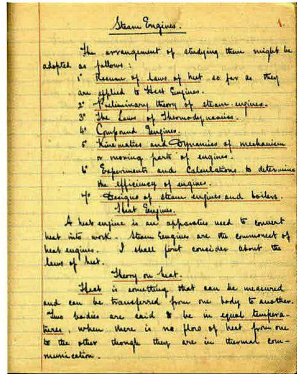 Steam Engines.
1.
The arrangement of studying them might be
adopted as follows:
1° Resume of laws of heat so far as they
are applied to Heat Engines.
2° Preliminary theory of steam engines.
3° The Laws of Thermodynamics.
4° Compound Engines.
5° Kinematics and Dynamics of mechanism
or moving parts of engines.
6° Experiments and Calculations to determine
the efficiency of engines.
7° Designs of steam engines and boilers.
Heat Engines.
A heat engine is an apparatus used to convert
heat into work. Steam Engines are the commonest of
heat engines. I shall first consider about the
laws of heat.
Theory on heat.
Heat is something that can be measured
and can be transferred from one body to another.
Two bodies are said to be in equal tempera-
tures, when there is no flow of heat from one
to the other though they are in thermal com-
munication.